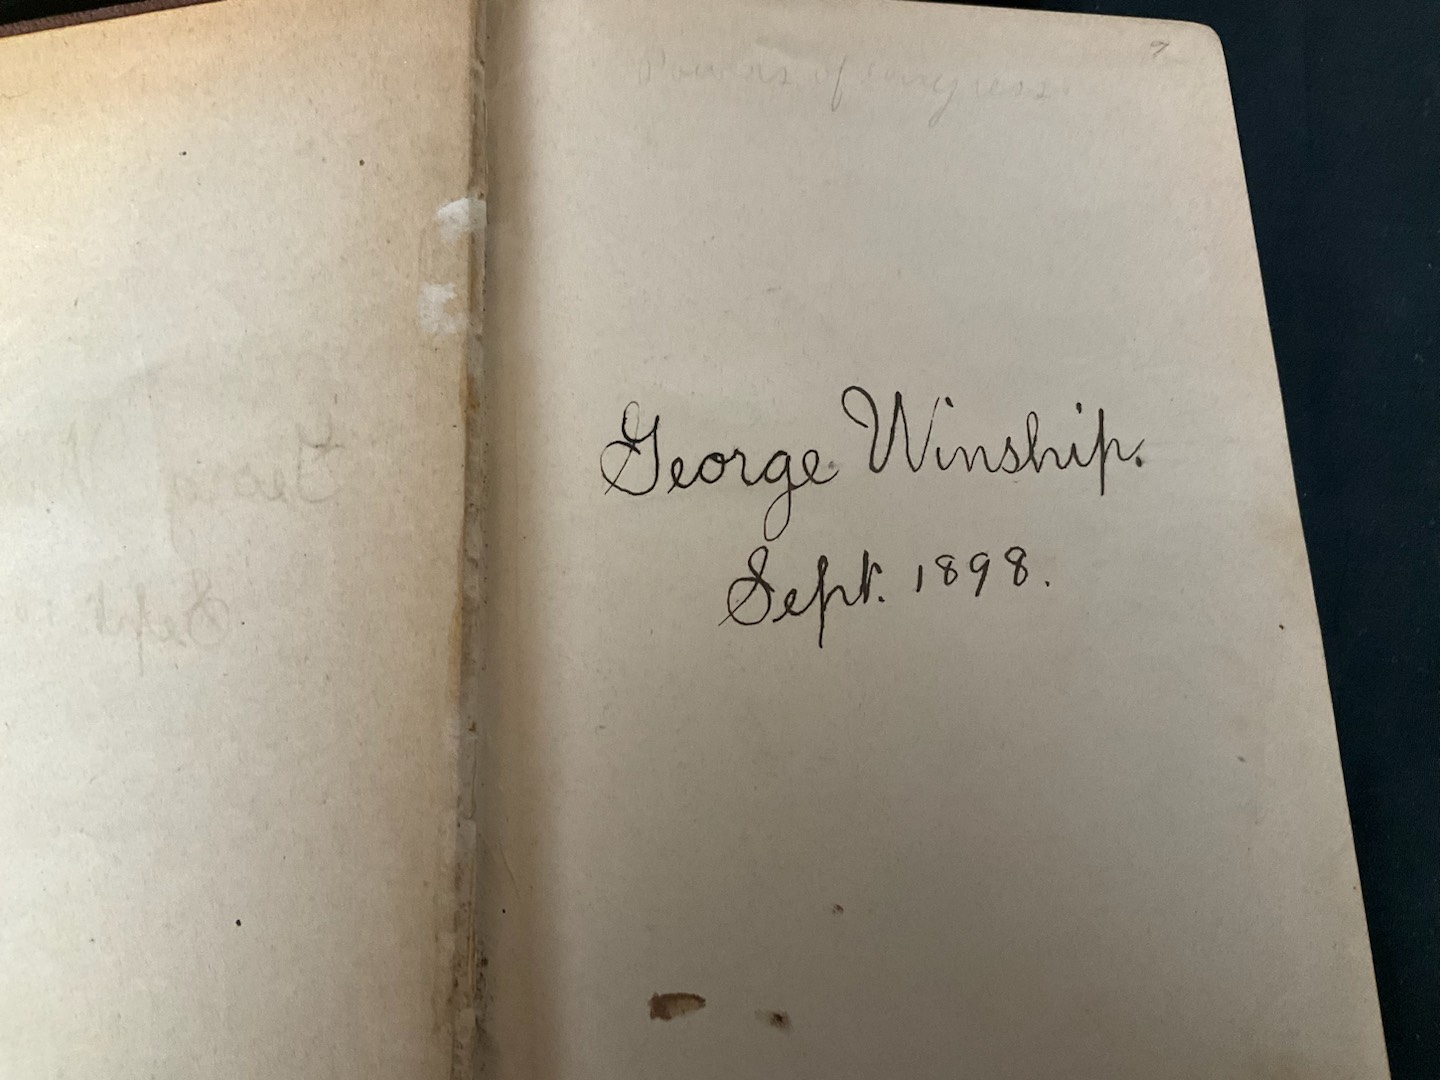 Powers of Congress
George Winship.
Sept. 1898.